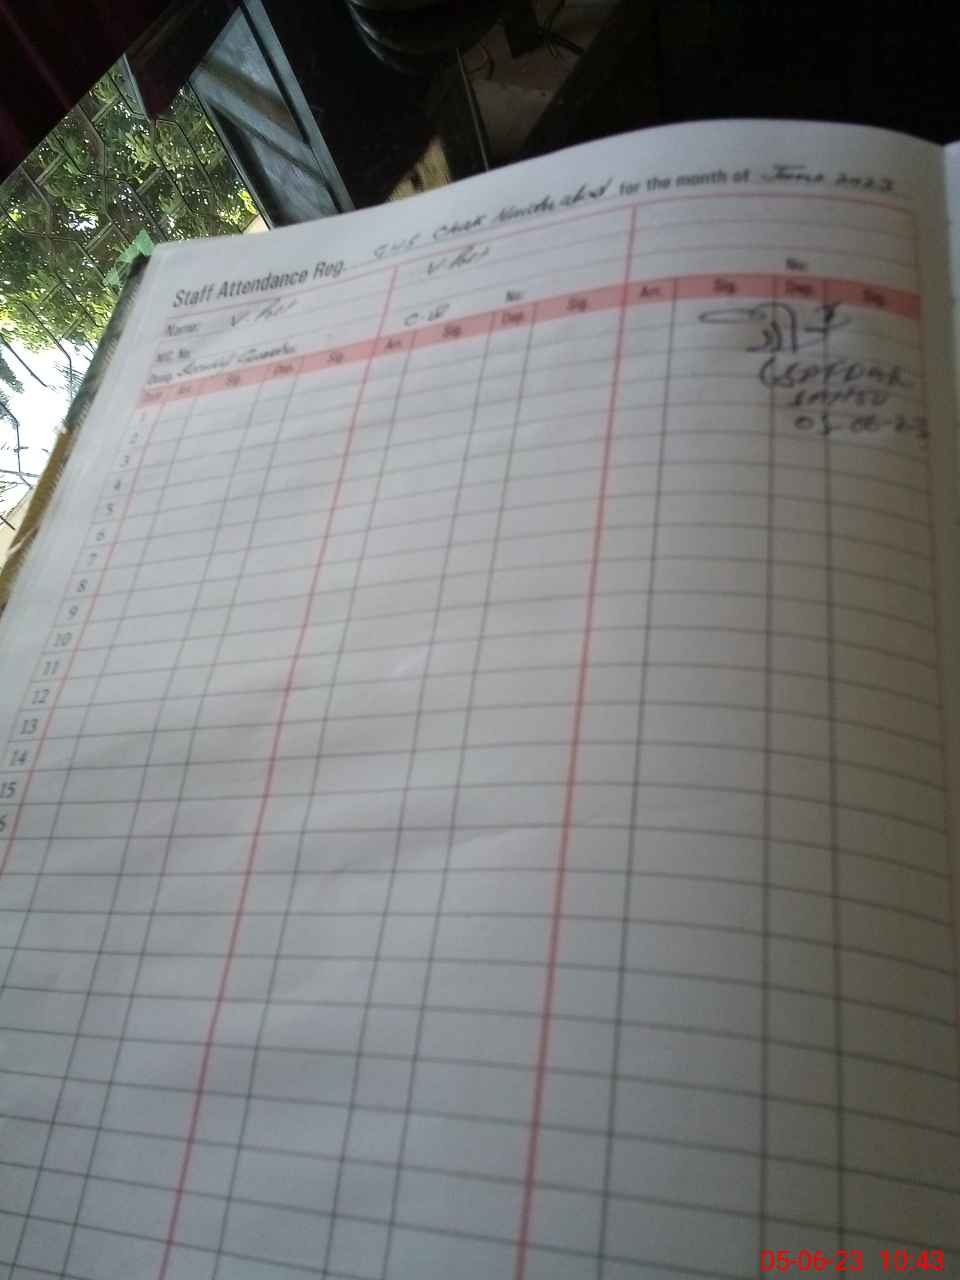 Staff Attendance Reg. GHS Chak for the month of June 2023
Name:
NIC No.
Desig. C-IV No. No.
Date Arr. Sig. Dep. Sig. Arr. Sig. Dep. Sig. Arr. Sig. Dep. Sig.
1
2
3
4
5
6
7
8
9
10
11
12
13
14
15
6
(SAFDAR
05-06-23
05-06-23 10:43